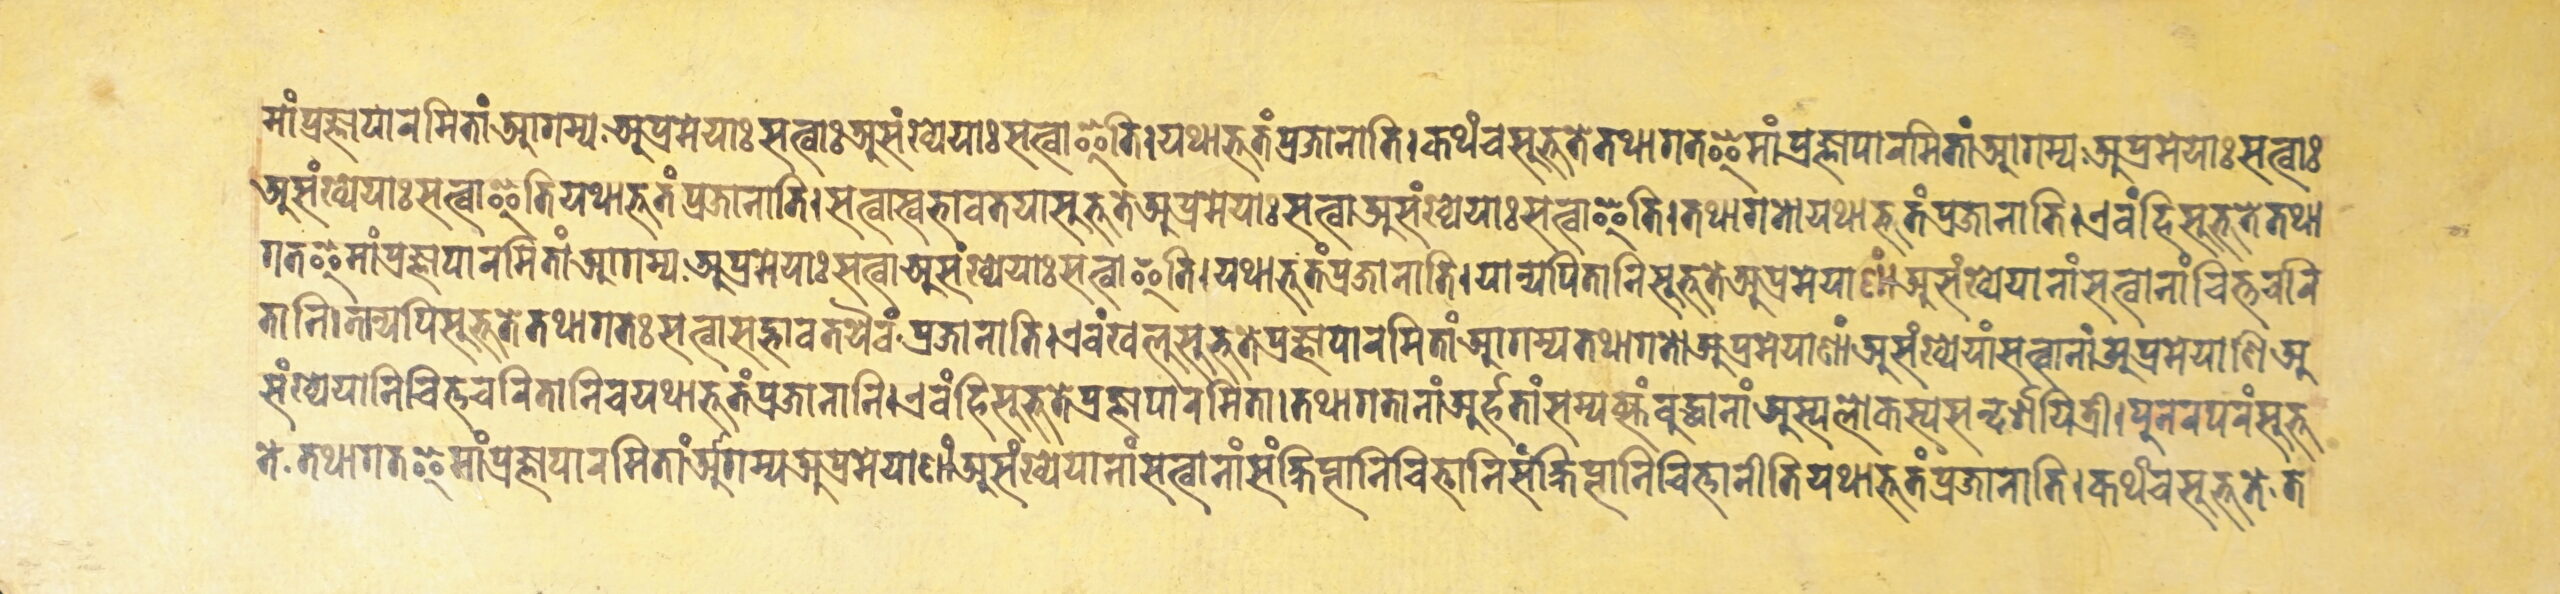 मांप्रज्ञापारमितांआगम्य.अप्रमेयाःसत्वाःअसंख्येयाःसत्वाइति।यथाभूतंप्रजानाति।कथंचसुभूतेतथागतइमांप्रज्ञापारमितांआगम्य.अप्रमेयाःसत्वाः
असंख्येयाःसत्वाइतियथाभूतंप्रजानाति।सत्वास्वभावतयासुभूतेअप्रमेयाःसत्वाअसंख्येयाःसत्वाइति।तथागतोयथाभूतंप्रजानाति।एवंहिसुभूतेतथा
गतइमांप्रज्ञापारमितांआगम्य.अप्रमेयाःसत्वाअसंख्येयाःसत्वाइति।यथाभूतंप्रजानाति।यान्यपितानिसुभूतेअप्रमेयाणांअसंख्येयानांसत्वानांचित्तचरि
तानि।तान्यपिसुभूतेतथागतःसत्वासद्भावतयैवं.प्रजानाति।एवंखलुसुभूतेप्रज्ञापारमितांआगम्यतथागतोअप्रमेयाणांअसंख्येयांसत्वानांअप्रमेयाणिअ
संख्येयानिचित्तचरितानिचयथाभूतंप्रजानानि।एवंहिसुभूतेप्रज्ञापारमिता।तथागतानांअर्हतांसम्यक्संबुद्धानांअस्यलोकस्यसन्दर्शयित्री।पुनरपरंसुभू
ते.तथागतइमांप्रज्ञापारमितांआगम्यअप्रमेयाणांअसंख्येयानांसत्वानांसंक्षिप्तानिचित्तानिसंक्षिप्तानिचित्तानीतियथाभूतंप्रजानाति।कथंचसुभूते.त